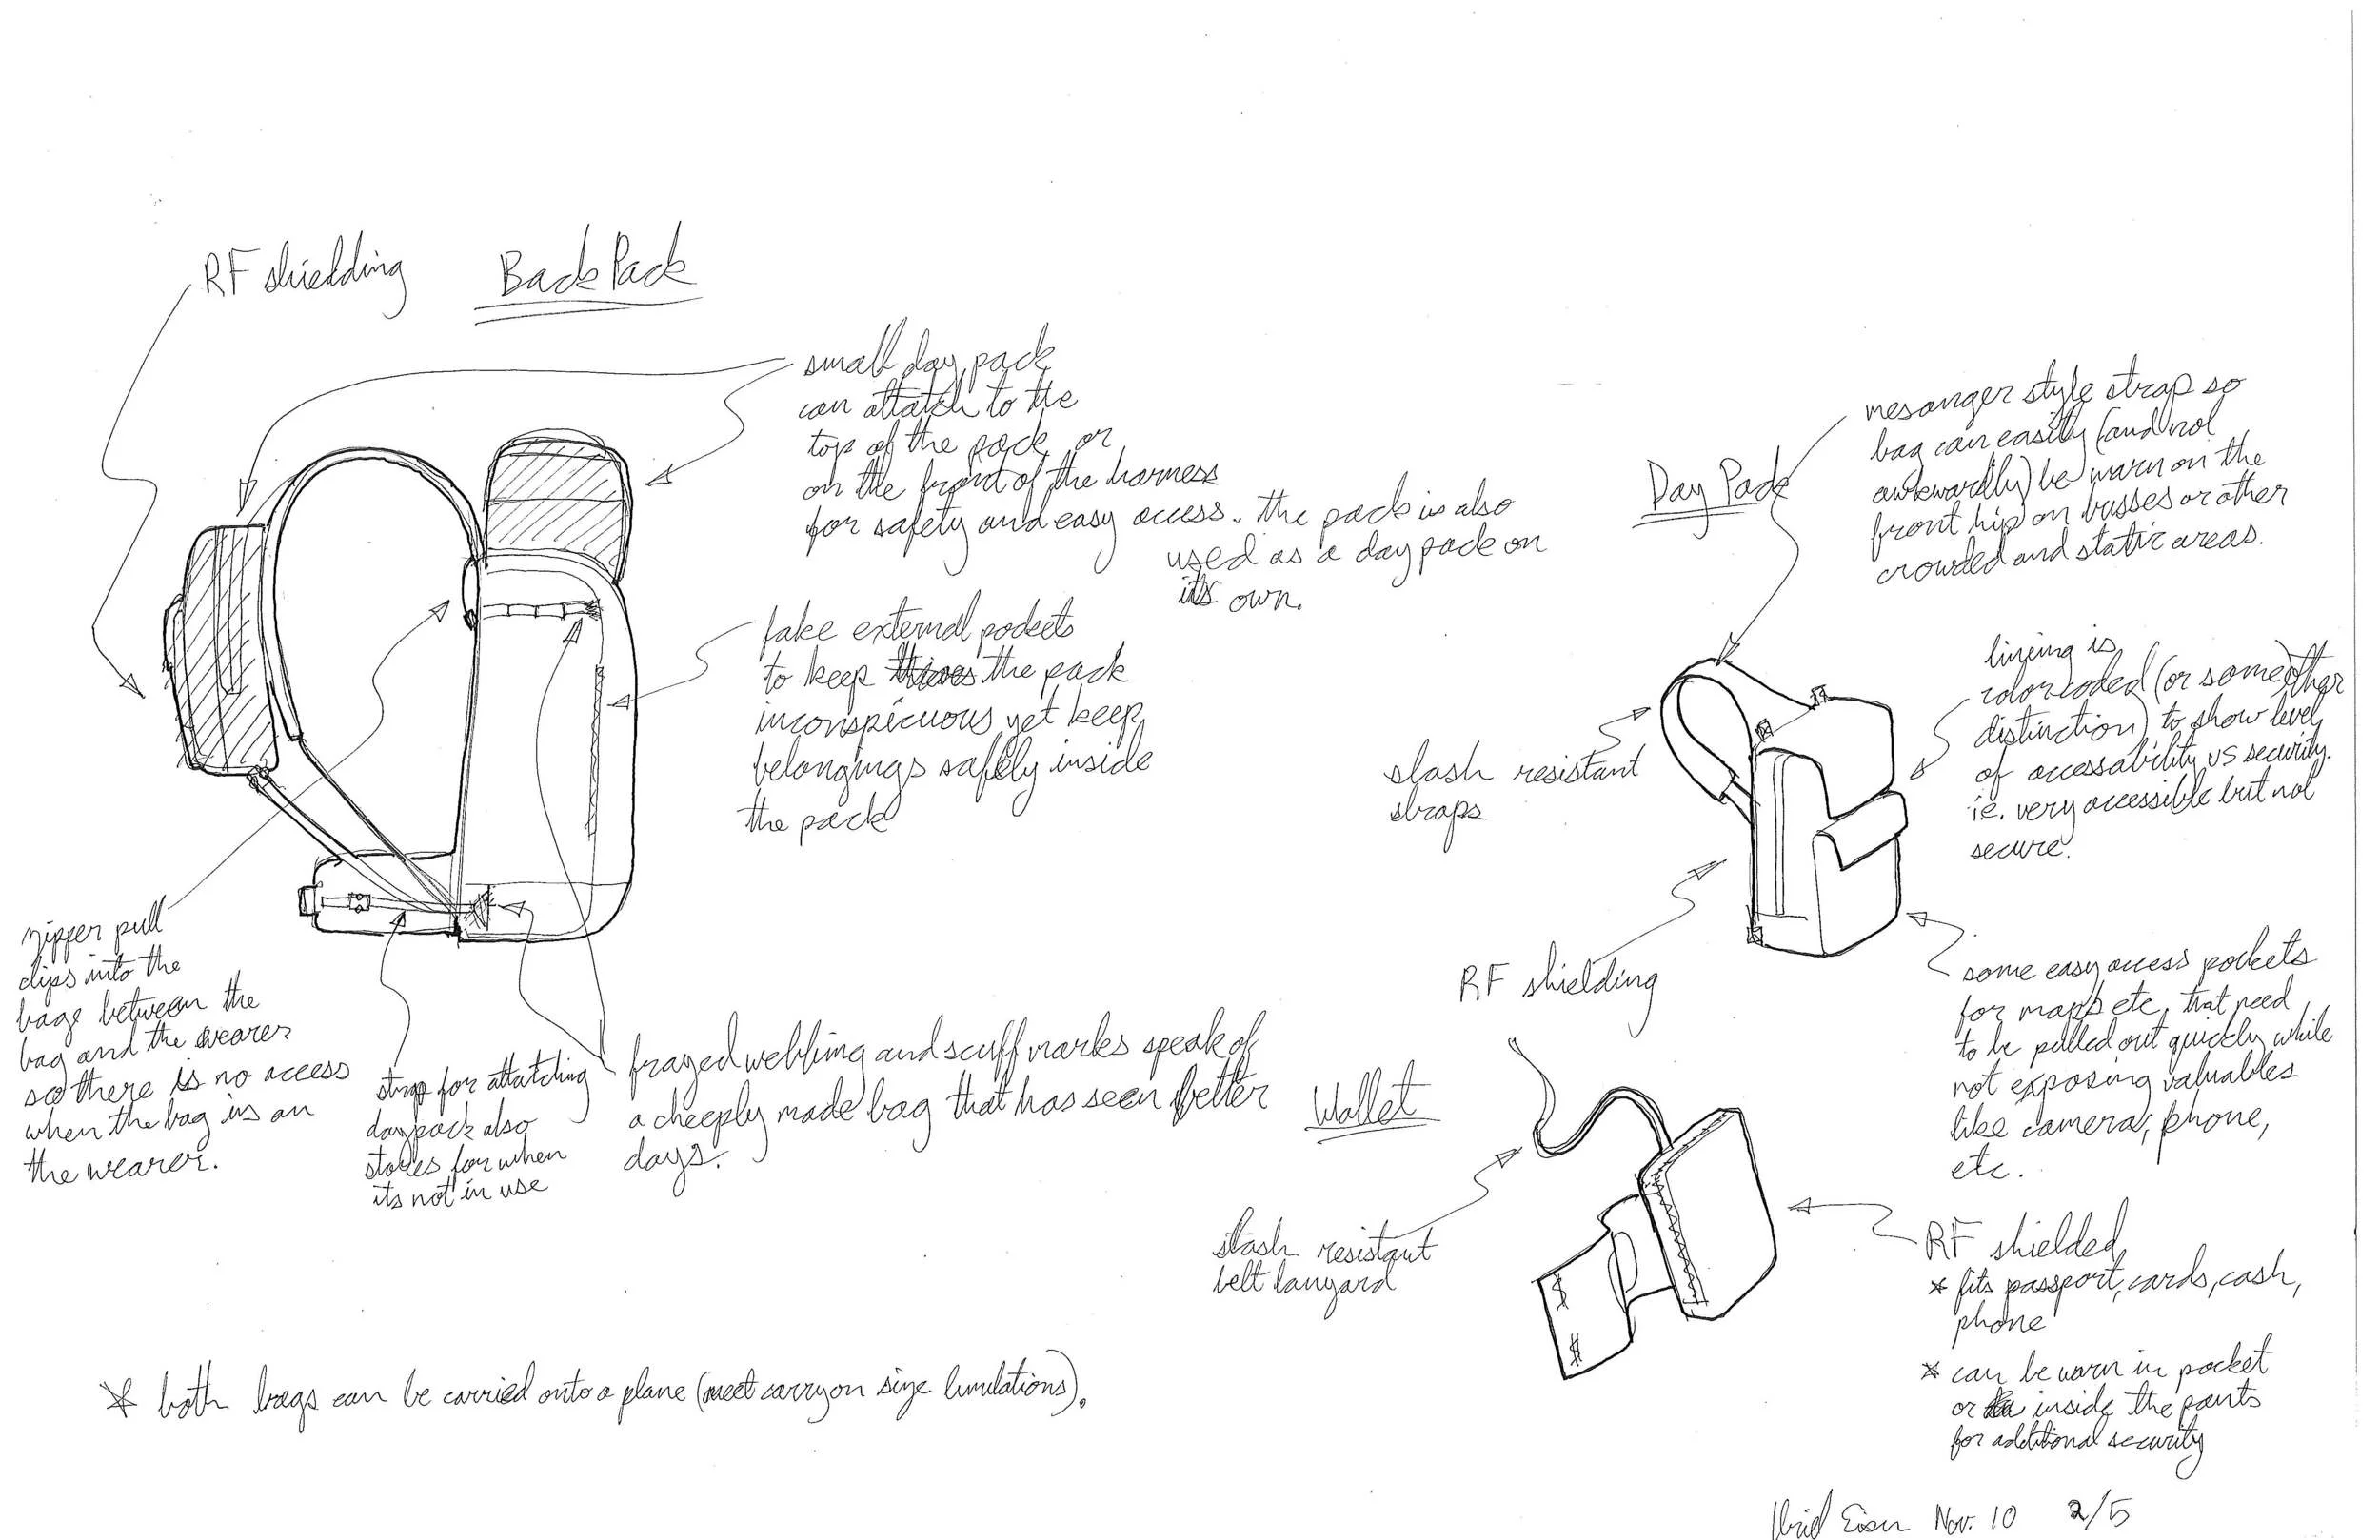 RF shielding
BackPack
small day pack
can attatch to the
top of the pack or
on the front of the harness
for safety and easy access. the pack is also
used as a day pack on
its own.
fake external pockets
to keep the pack
inconspicuous yet keep
belongings safely inside
the pack
zipper pull
clips into the
bage between the
bag and the wearer
so there is no access
when the bag is on
the wearer.
strap for attatching
daypack also
stores for when
its not in use
frayed webbing and scuff marks speak of
a cheeply made bag that has seen better
days.
* both bags can be carried onto a plane (meet carryon size limitations).
Day Pack
mesanger style strap so
bag can easily (and not
awkwardly) be warn on the
front hip on busses or other
crowded and static areas.
slash resistant
straps
lineing is
color coded (or some other
distinction) to show level
of accessability vs security.
ie. very accessible but not
secure.
RF shielding
some easy access pockets
for maps etc. that need
to be pulled out quickly while
not exposing valuables
like camera, phone,
etc.
Wallet
slash resistant
belt lanyard
RF shielded
* fits passport, cards, cash,
phone
* can be warn in pocket
or inside the pants
for additional security
Nov. 10 2/5